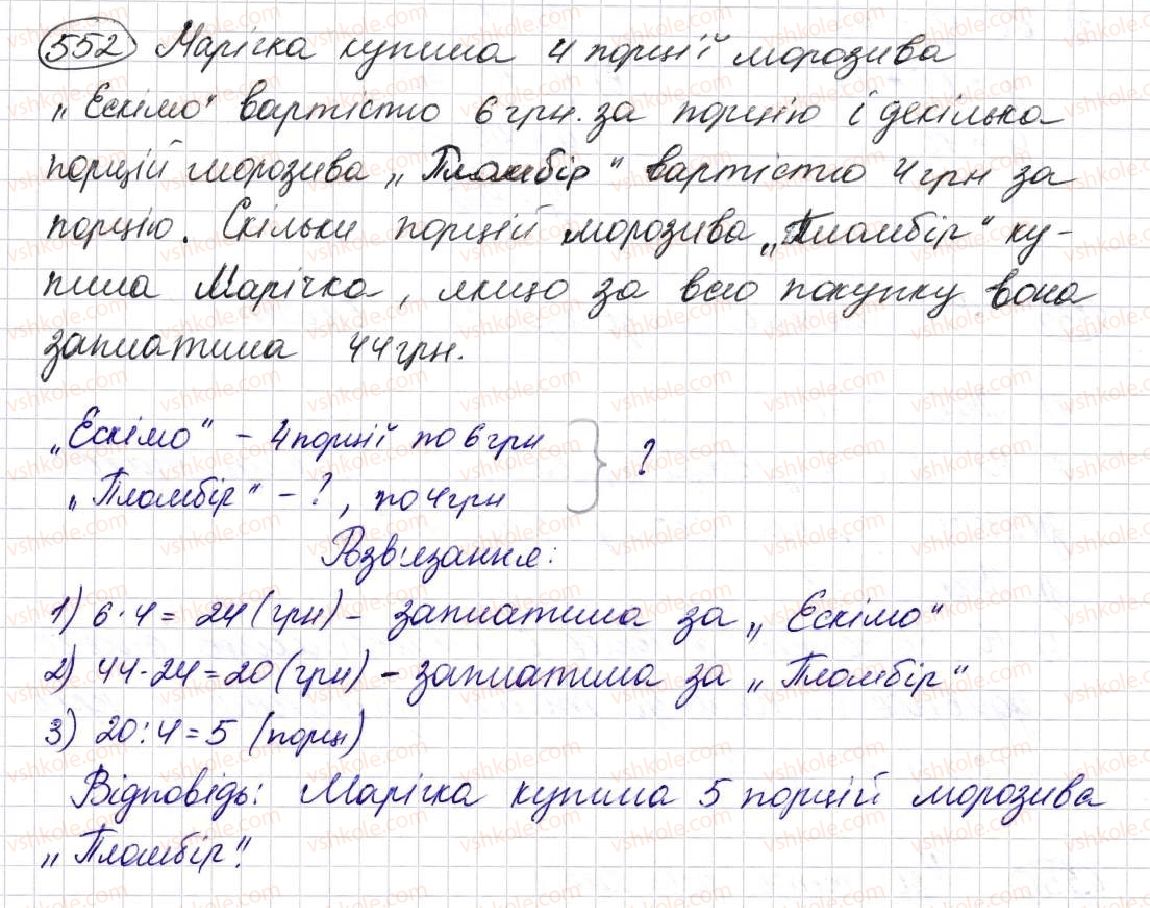 552 Марічка купила 4 порції морозива
„Ескімо" вартістю 6 грн. за порцію і декілька
порцій морозива „Пломбір" вартістю 4 грн за
порцію. Скільки порцій морозива „Пломбір" ку-
пила Марічка, якщо за всю покупку вона
заплатила 44 грн.
„Ескімо" - 4 порції по 6 грн
„Пломбір" - ?, по 4 грн } ?
Розв'язання:
1) 6·4 = 24 (грн) - заплатила за „Ескімо"
2) 44-24=20 (грн) - заплатила за „Пломбір"
3) 20:4=5 (порц)
Відповідь: Марічка купила 5 порцій морозива
„Пломбір".